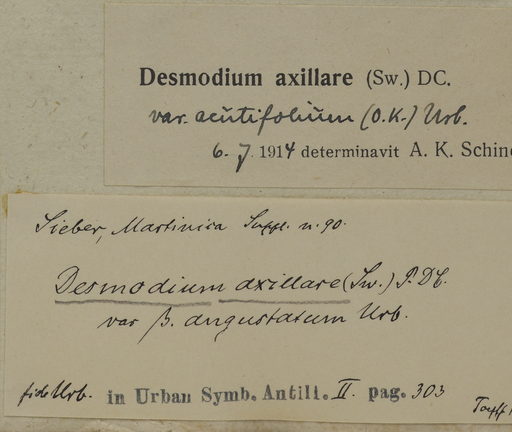 Desmodium axillare (Sw.) DC.
var. acutifolium (O.K.) Urb.
6. 7. 1914 determinavit A. K. Schin
Sieber, Martinica Suppl. n. 90.
Desmodium axillare (Sw.) P. DC.
var β. angustatum Urb.
fide Urb. in Urban Symb. Antill. II. pag. 303